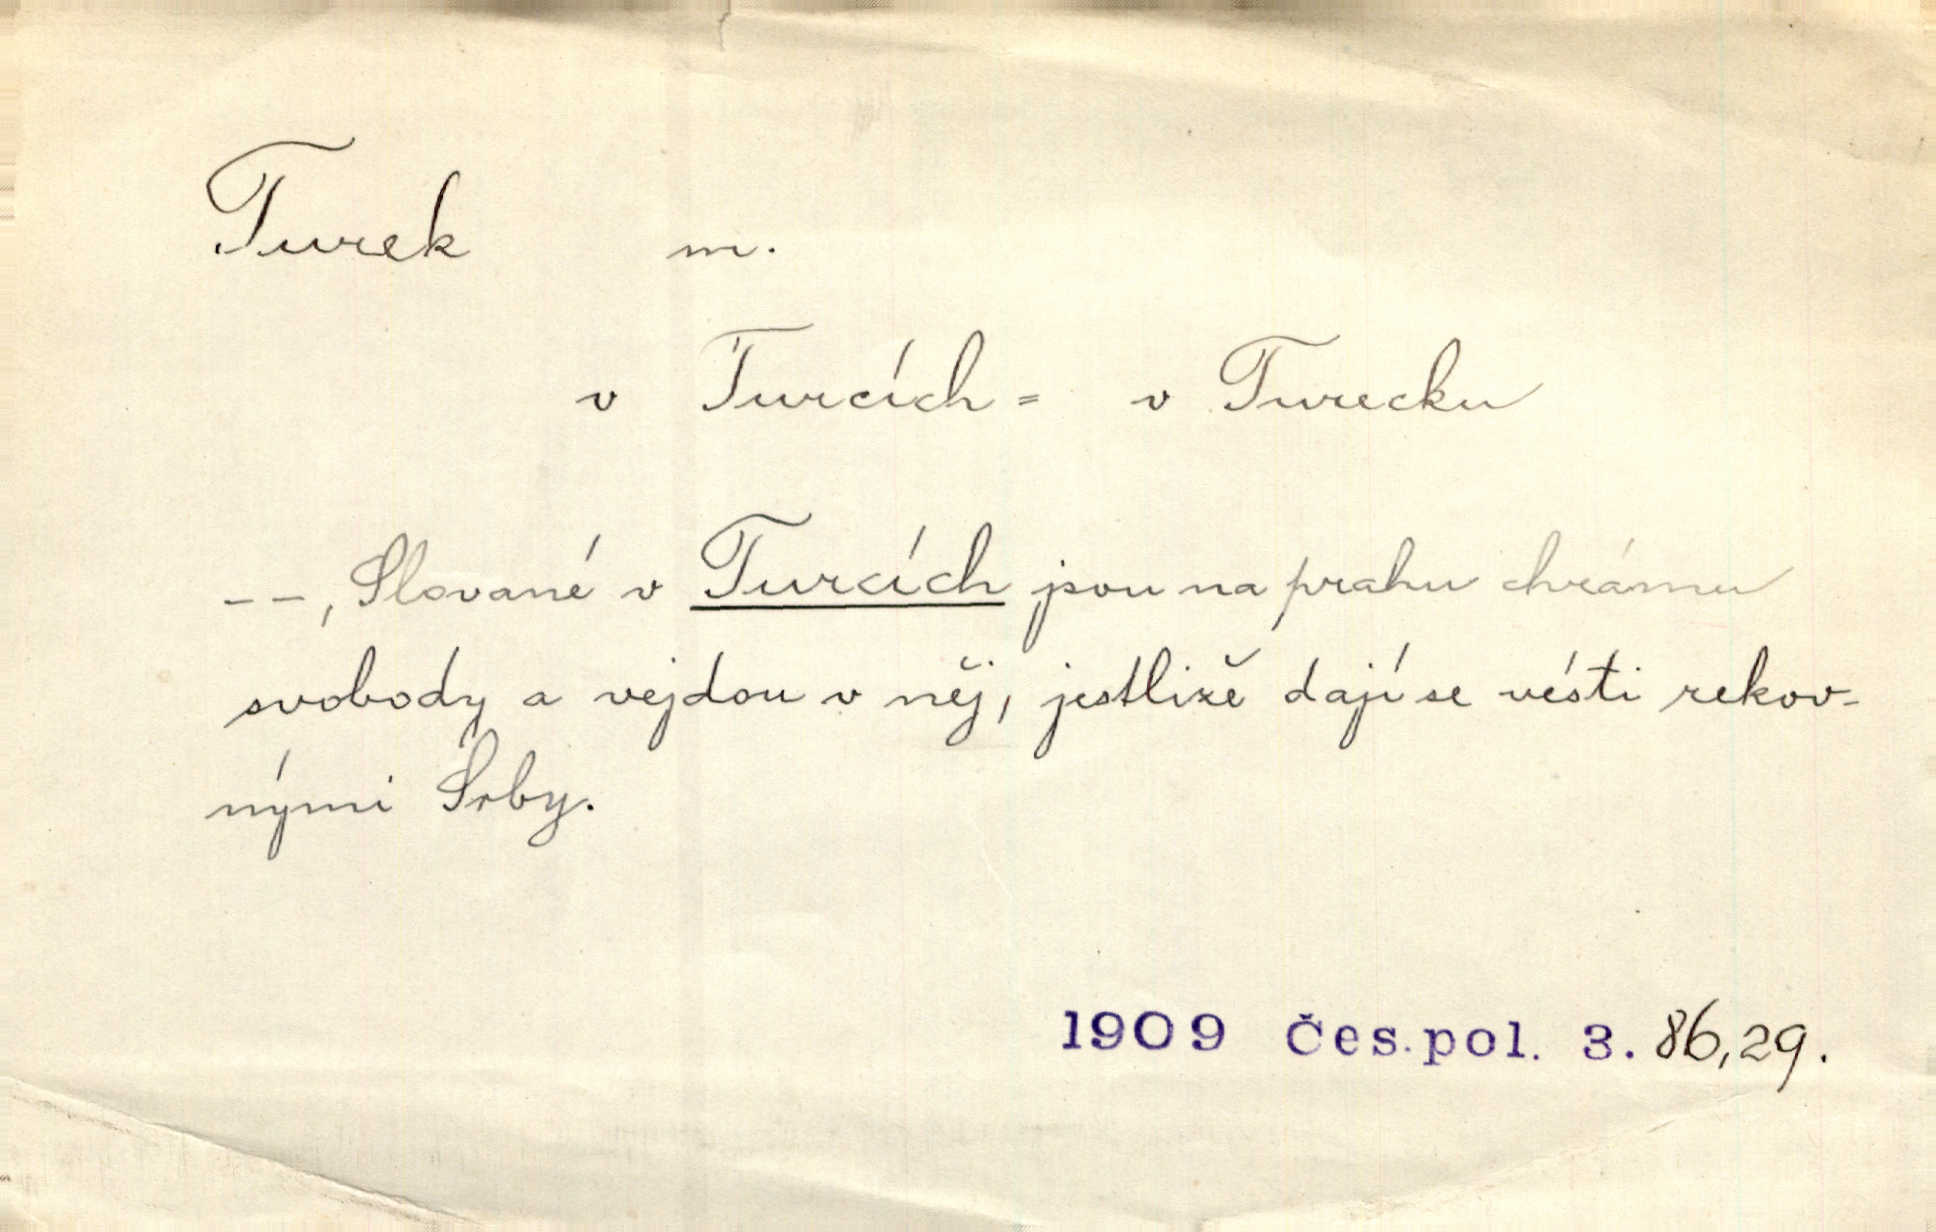 Turek m.
v Turcích = v Turecku
– –, Slované v Turcích jsou na prahu chrámu
svobody a vejdou v něj, jestliže dají se vésti rekov-
nými Srby.
1909 Čes. pol. 3. 86,29.